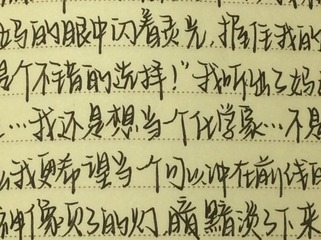 妈的眼中闪着灵光，握住我的
是个不错的选择！”我听出了妈
…我还是想当一个化学家…不是
我更希望当一个可以冲在前线的
神像灭了的灯，暗黯淡了下来